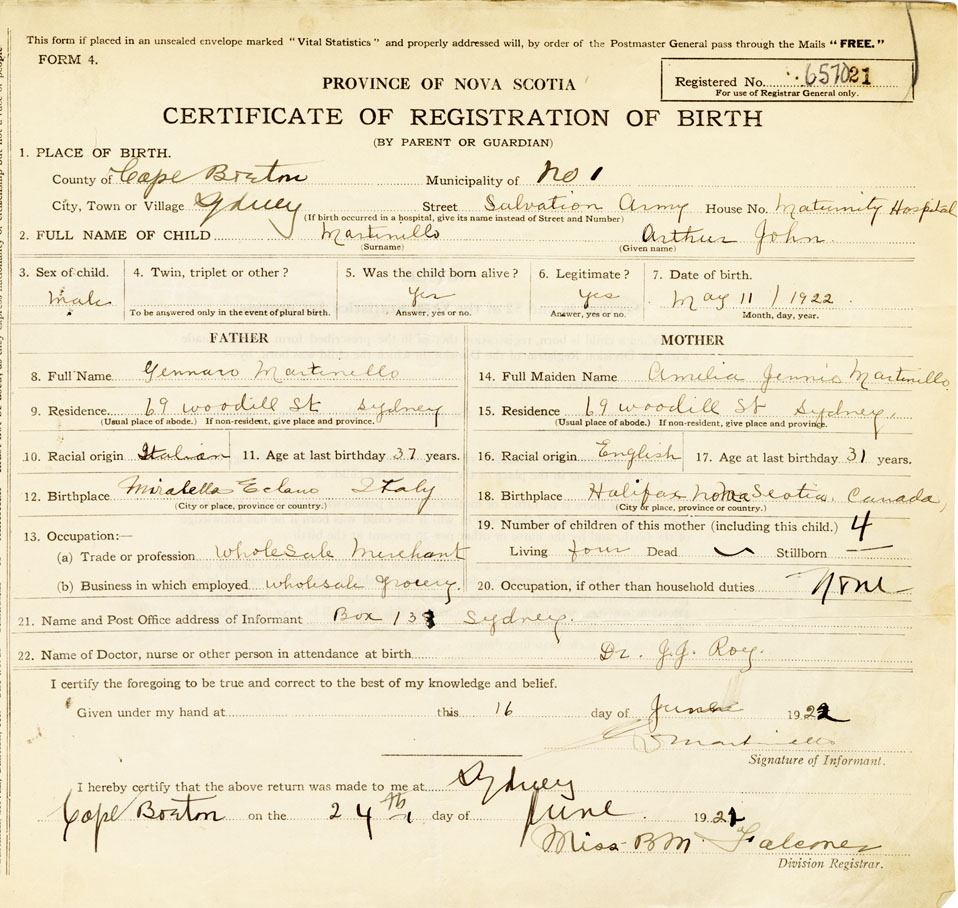 This form if placed in an unsealed envelope marked "Vital Statistics" and properly addressed will, by order of the Postmaster General pass through the Mails "FREE."
FORM 4.
Registered No. 657021
For use of Registrar General only.
PROVINCE OF NOVA SCOTIA
CERTIFICATE OF REGISTRATION OF BIRTH
(BY PARENT OR GUARDIAN)
1. PLACE OF BIRTH.
County of Cape Breton Municipality of No 1
City, Town or Village Sydney Street Salvation Army House No. Maternity Hospital
(If birth occurred in a hospital, give its name instead of Street and Number)
2. FULL NAME OF CHILD Martinello Arthur John
(Surname) (Given name)
3. Sex of child. 4. Twin, triplet or other? 5. Was the child born alive? 6. Legitimate? 7. Date of birth.
Male Yes Yes May 11 / 1922
To be answered only in the event of plural birth. Answer, yes or no. Answer, yes or no. Month, day, year.
FATHER MOTHER
8. Full Name Gennaro Martinello 14. Full Maiden Name Amelia Jennis Martinello
9. Residence 69 Woodill St Sydney 15. Residence 69 Woodill St Sydney.
(Usual place of abode.) If non-resident, give place and province. (Usual place of abode.) If non-resident, give place and province.
10. Racial origin Italian 11. Age at last birthday 37 years. 16. Racial origin English 17. Age at last birthday 31 years.
12. Birthplace Mirabella Eclano Italy 18. Birthplace Halifax Nova Scotia, Canada,
(City or place, province or country.) (City or place, province or country.)
13. Occupation:— 19. Number of children of this mother (including this child.) 4
(a) Trade or profession Wholesale Merchant Living four Dead Stillborn —
(b) Business in which employed wholesale Grocery. 20. Occupation, if other than household duties None
21. Name and Post Office address of Informant Box Sydney.
22. Name of Doctor, nurse or other person in attendance at birth Dr. J.J. Roy.
I certify the foregoing to be true and correct to the best of my knowledge and belief.
Given under my hand at this 16 day of June 1922
G Martinello
Signature of Informant.
I hereby certify that the above return was made to me at Sydney
Cape Breton on the 24th day of June 192
Miss B M Falconer
Division Registrar.